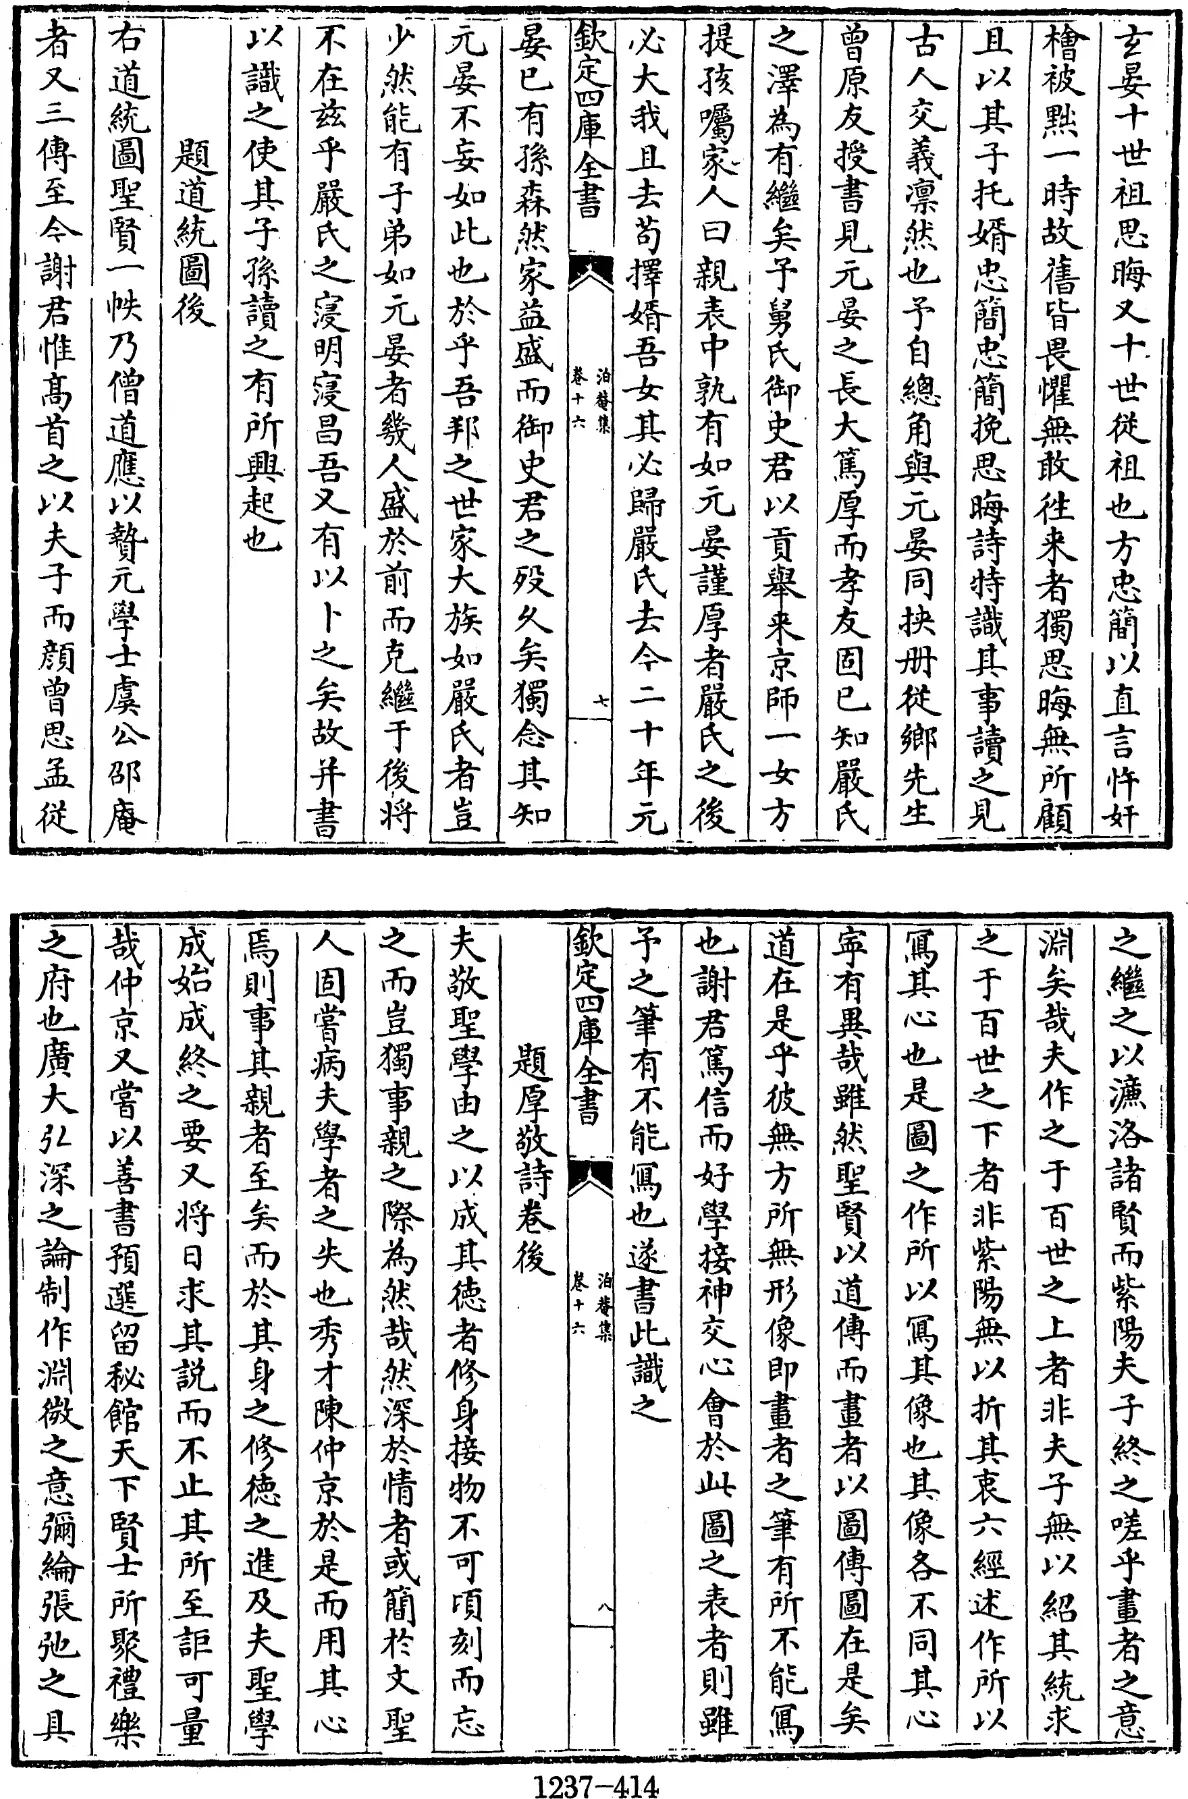 玄晏十世祖思晦又十一世從祖也方忠簡以直言忤奸
檜被黜一時故舊皆畏懼無敢徃来者獨思晦無所顧
且以其子托婿忠簡忠簡挽思晦詩特識其事讀之見
古人交義凛然也予自總角與元晏同抰册從鄉先生
曾原友授書見元晏之長大篤厚而孝友固已知嚴氏
之澤為有繼矣予舅氏御史君以貢舉来京師一女方
提孩囑家人曰親表中孰有如元晏謹厚者嚴氏之後
必大我且去苟擇婿吾女其必歸嚴氏去今二十年元
欽定四庫全書
泊菴集
卷十六
七
晏已有孫森然家益盛而御史君之殁久矣獨念其知
元晏不妄如此也於乎吾邦之世家大族如嚴氏者豈
少然能有子弟如元晏者幾人盛於前而克繼于後将
不在兹乎嚴氏之寖明寖昌吾又有以卜之矣故并書
以識之使其子孫讀之有所興起也
題道統圖後
右道統圖聖賢一帙乃僧道應以贄元學士虞公邵庵
者又三傳至今謝君惟髙首之以夫子而顔曾思孟從
之繼之以濂洛諸賢而紫陽夫子終之嗟乎畫者之意
淵矣哉夫作之于百世之上者非夫子無以紹其統求
之于百世之下者非紫陽無以折其衷六經述作所以
寫其心也是圖之作所以寫其像也其像各不同其心
寜有異哉雖然聖賢以道傳而畫者以圖傳圖在是矣
道在是乎彼無方所無形像即畫者之筆有所不能寫
也謝君篤信而好學接神交心會於此圖之表者則雖
予之筆有不能寫也遂書此識之
欽定四庫全書
泊菴集
卷十六
八
題厚敬詩卷後
夫敬聖學由之以成其徳者修身接物不可頃刻而忘
之而豈獨事親之際為然哉然深於情者或簡於文聖
人固嘗病夫學者之失也秀才陳仲京於是而用其心
焉則事其親者至矣而於其身之修徳之進及夫聖學
成始成終之要又将日求其説而不止其所至詎可量
哉仲京又嘗以善書預選留秘館天下賢士所聚禮樂
之府也廣大弘深之論制作淵微之意彌綸張弛之具
1237-414